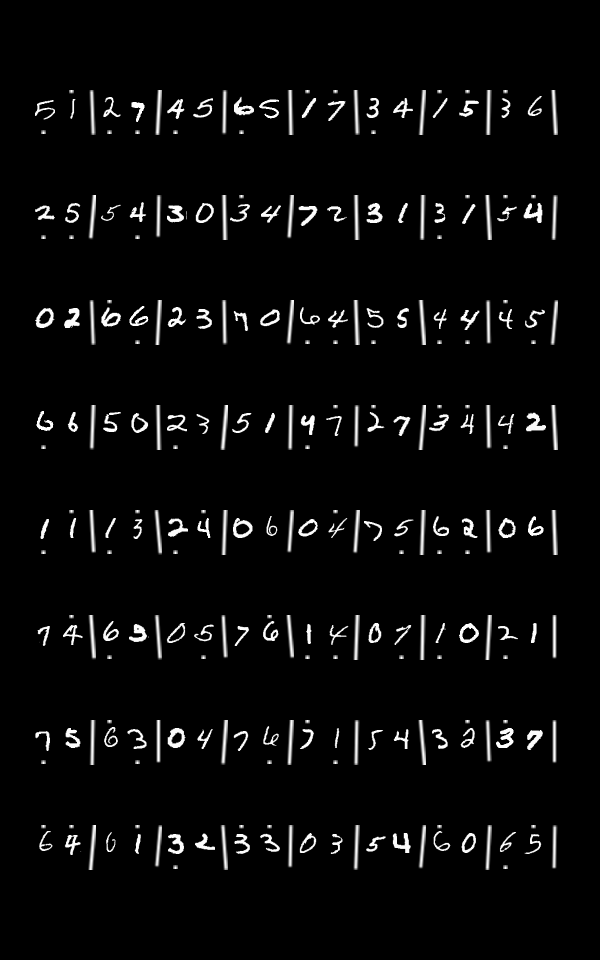 5̣ 1̇ | 2̣ 7̣ | 4̣ 5 | 6̣ 5 | 1̇ 7̇ | 3̣ 4 | 1̇ 5̇ | 3̇ 6 |
2̣ 5̣ | 5 4̣ | 3 0 | 3̇ 4 | 7 2 | 3 1 | 3̣ 1̇ | 5̇ 4̇ |
0 2 | 6̇ 6 | 2 3 | 7 0 | 6̣ 4̣ | 5̣ 5 | 4̣ 4̣ | 4̇ 5̣ |
6̣ 6 | 5 0 | 2̣ 3 | 5 1 | 4̣ 7̇ | 2̇ 7 | 3̇ 4̇ | 4̣ 2 |
1̣ 1̇ | 1̣ 3̇ | 2̣ 4̇ | 0 6 | 0 4̇ | 7 5̣ | 6̣ 2̣ | 0 6 |
7 4̇ | 6̣ 3 | 0 5̣ | 7 6̇ | 1̣ 4̣ | 0 7̣ | 1̣ 0 | 2̣ 1 |
7̣ 5 | 6̇ 3 | 0 4 | 7 6̣ | 7̇ 1̣ | 5 4 | 3 2̇ | 3̇ 7 |
6̇ 4̇ | 0 1̇ | 3̣ 2 | 3̇ 3̇ | 0 3 | 5 4 | 6̇ 0 | 6̣ 5̇ |